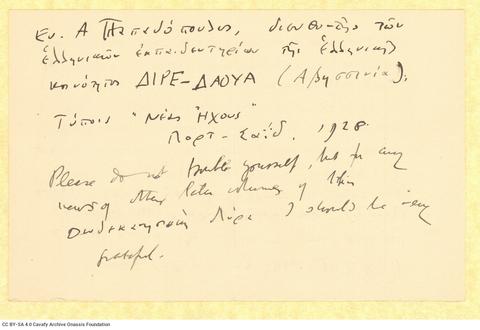 Ευ. Α Παπαδόπουλος, διευθυντὴς τῶν
ἑλληνικῶν ἐκπαιδευτηρίων τῆς ἑλληνικῆς
κοινότητος ΔΙΡΕ-ΔΑΟΥΑ (Αβησσινία).
Τύποις "Νέας Ἠχοῦς"
Πορτ-Σαΐδ. 1928.
Please do not trouble yourself, but for any
news of other later volumes of this
Δωδεκανησιακὴ Λύρα I should be very
grateful.
CC BY-SA 4.0 Cavafy Archive Onassis Foundation